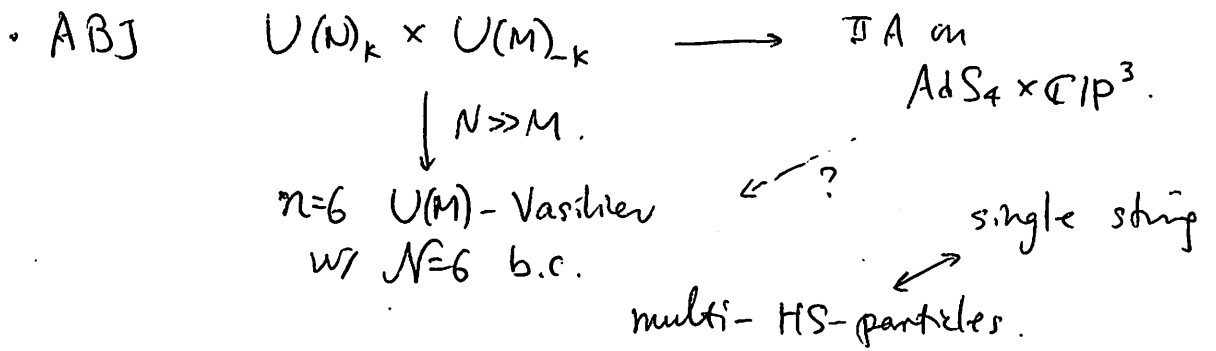 • ABJ U(N)_k × U(M)_{-k} ⟶ IIA on
AdS₄ × CP³.
↓ N≫M.
n=6 U(M)-Vasiliev ?
w/ N=6 b.c. single string
multi-HS-particles.